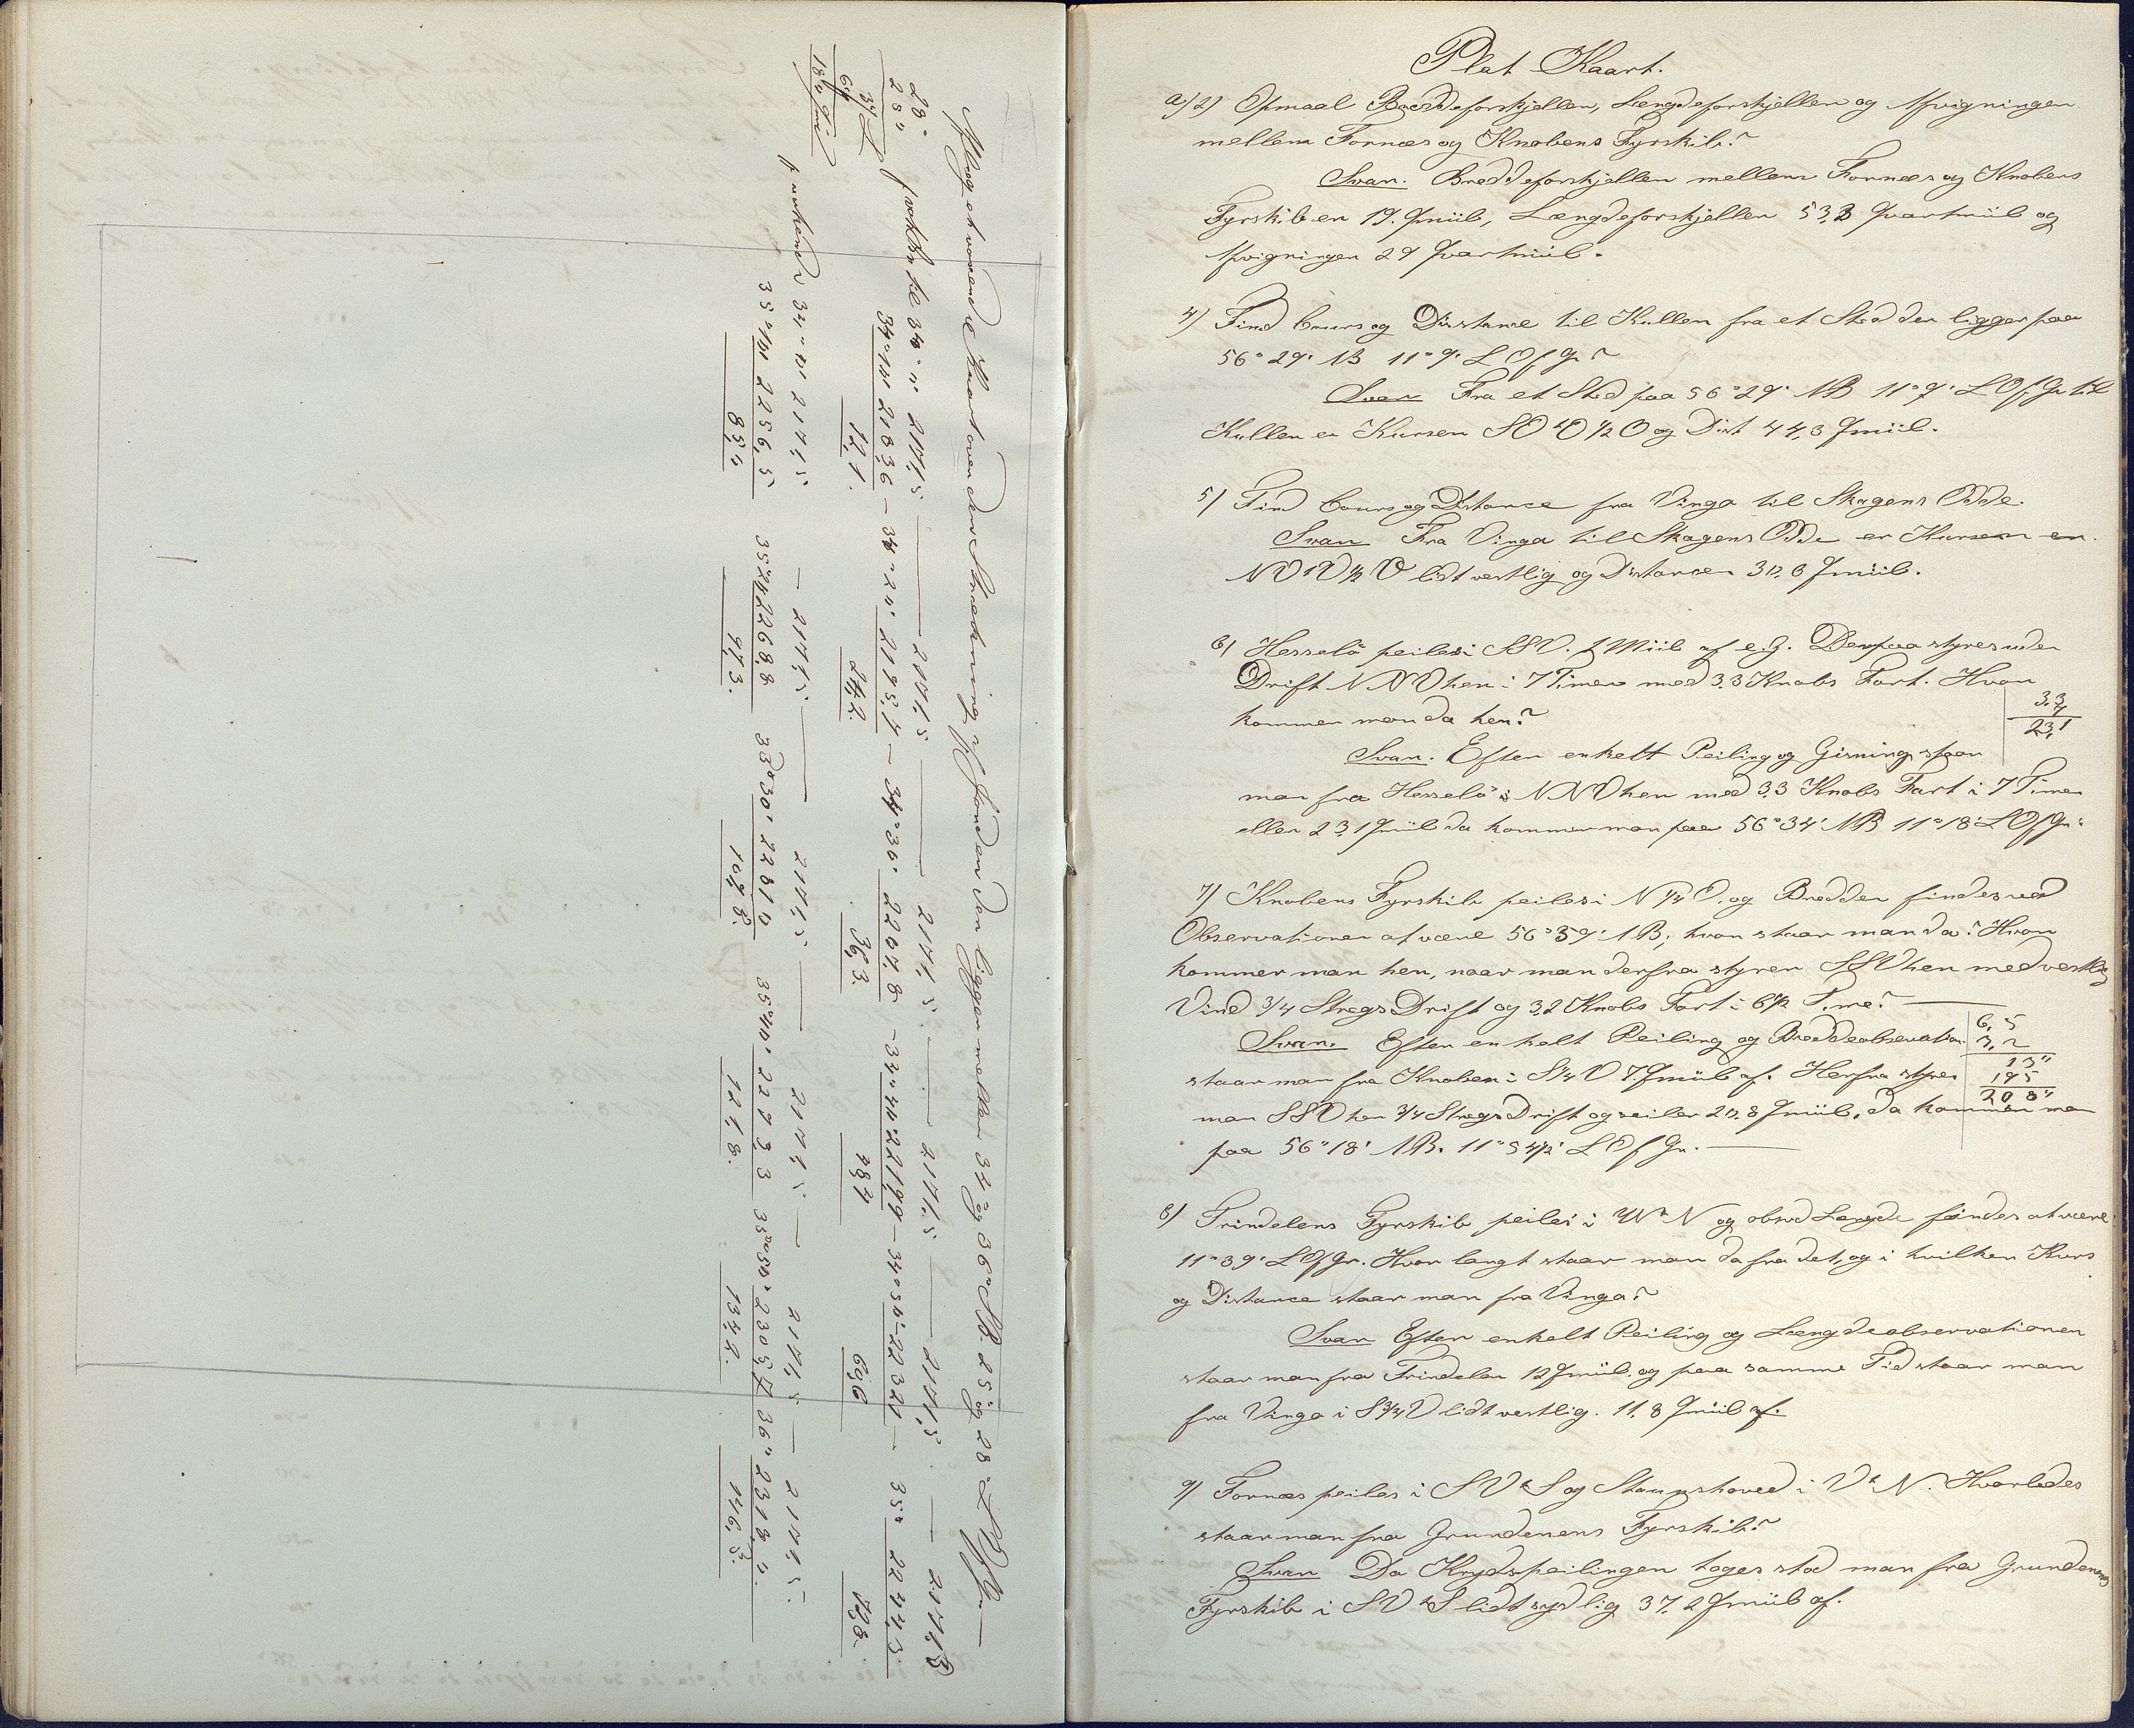 Afsæt et voxende Kaart over den Strækning af Jorden der ligger mellem 34° og 36° NB. 25° og 28° L V f Gr.
28°
25°
3° L
60
180 Qmiil
for 34° 2171,5 — 2171,5 — 2171,5 — 2171,5 — 2171,5 — 2171,5
34° 10' 2183,6 — 34° 20' 2195,7 — 34° 30' 2207,8 — 34° 40' 2219,9 — 34° 50' 2232,1 — 35° 2244,3
12,1. 24,2. 36,3. 48,4 60,6 72,8
34° 2171,5 — 2171,5 — 2171,5 — 2171,5 — 2171,5 — 2171,5
35° 10' 2256,5 35° 20' 2268,8 35° 30' 2281,0 35° 40' 2293,3 35° 50' 2305,7 36° 2318,0
85,0 97,3. 121,8. 134,2. 146,5.
Plat Kaart.
a) 2) Opmaal Breddeforskjellen, Længdeforskjellen og Afvigningen
mellem Fornæs og Knobens Fyrskib?
Svar. Breddeforskjellen mellem Fornæs og Knobens
Fyrskib er 19. Qmiil, Længdeforskjellen 53,3 Qvartmiil og
Afvigningen 29 Qvartmiil.
4) Find Cours og Distance til Kullen fra et Sted der ligger paa
56° 29' NB 11° 9' L O f Gr?
Svar Fra et Sted paa 56° 29' NB 11° 9' L O f Gr til
Kullen er Kursen SOtO ½ O og Dist 44,3 Qmiil.
5) Find Cours og Distance fra Vinga til Skagens Odde.
Svar Fra Vinga til Skagens Odde er Kursen en
NVtV ½ V lidt vestlig og Distancen 30,6 Qmiil.
6) Hesselö peiles i SSV. 1 Miil af e. G. Derpaa styres uden
Drift NNV hen i 7 Timer med 3,3 Knobs Fart. Hvor
kommer man da hen?
3,3
7
23,1
Svar. Efter enkelt Peiling og Gisning staar
man fra Hesselö i NNV hen med 3,3 Knobs Fart i 7 Timer
eller 23,1 Qmiil da kommer man paa 56° 34' NB 11° 18' L O f Gr.
7) Knobens Fyrskib peiles i N ¼ O. og Bredden findes ved
Observationer at være 56° 39' NB; hvor staar man da? Hvor
kommer man hen, naar man derfra styrer SSV hen med vestlig
Vind ¾ Stregs Drift og 3,2 Knobs Fart i 6½ Time?
Svar. Efter enkelt Peiling og Breddeobservation
6,5
3,2
13"
195
20 8"
staar man fra Knoben i S ¼ V 7. Qmiil af. Herfra styres
man SSV hen ¾ Stregs Drift og seiler 20,8 Qmiil, da kommer man
paa 56° 18' NB. 11° 54½' L O f Gr.
8) Trindelens Fyrskib peiles i VNtN og obsvd Længde findes at være
11° 39' L O f Gr. Hvor langt staar man da fra det, og i hvilken Kurs
og Distance staar man fra Vinga?
Svar Efter enkelt Peiling og Længdeobservationen
staar man fra Trindelen 12 Qmiil. og paa samme Tid staar man
fra Vinga i S ¾ V lidt vestlig. 11,8 Qmiil af.
9) Fornæs peiles i SVtS og Stavnshoved i VtN. Hvorledes
staar man fra Grundenens Fyrskib?
Svar Da Krydspeilingen toges stod man fra Grundenens
Fyrskib i SVtS lidt sydlig 37,2 Qmiil af.